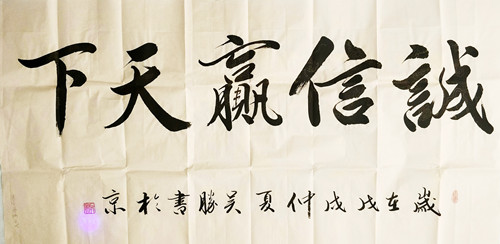 誠信贏天下
歲在戊戌仲夏吴勝書於京